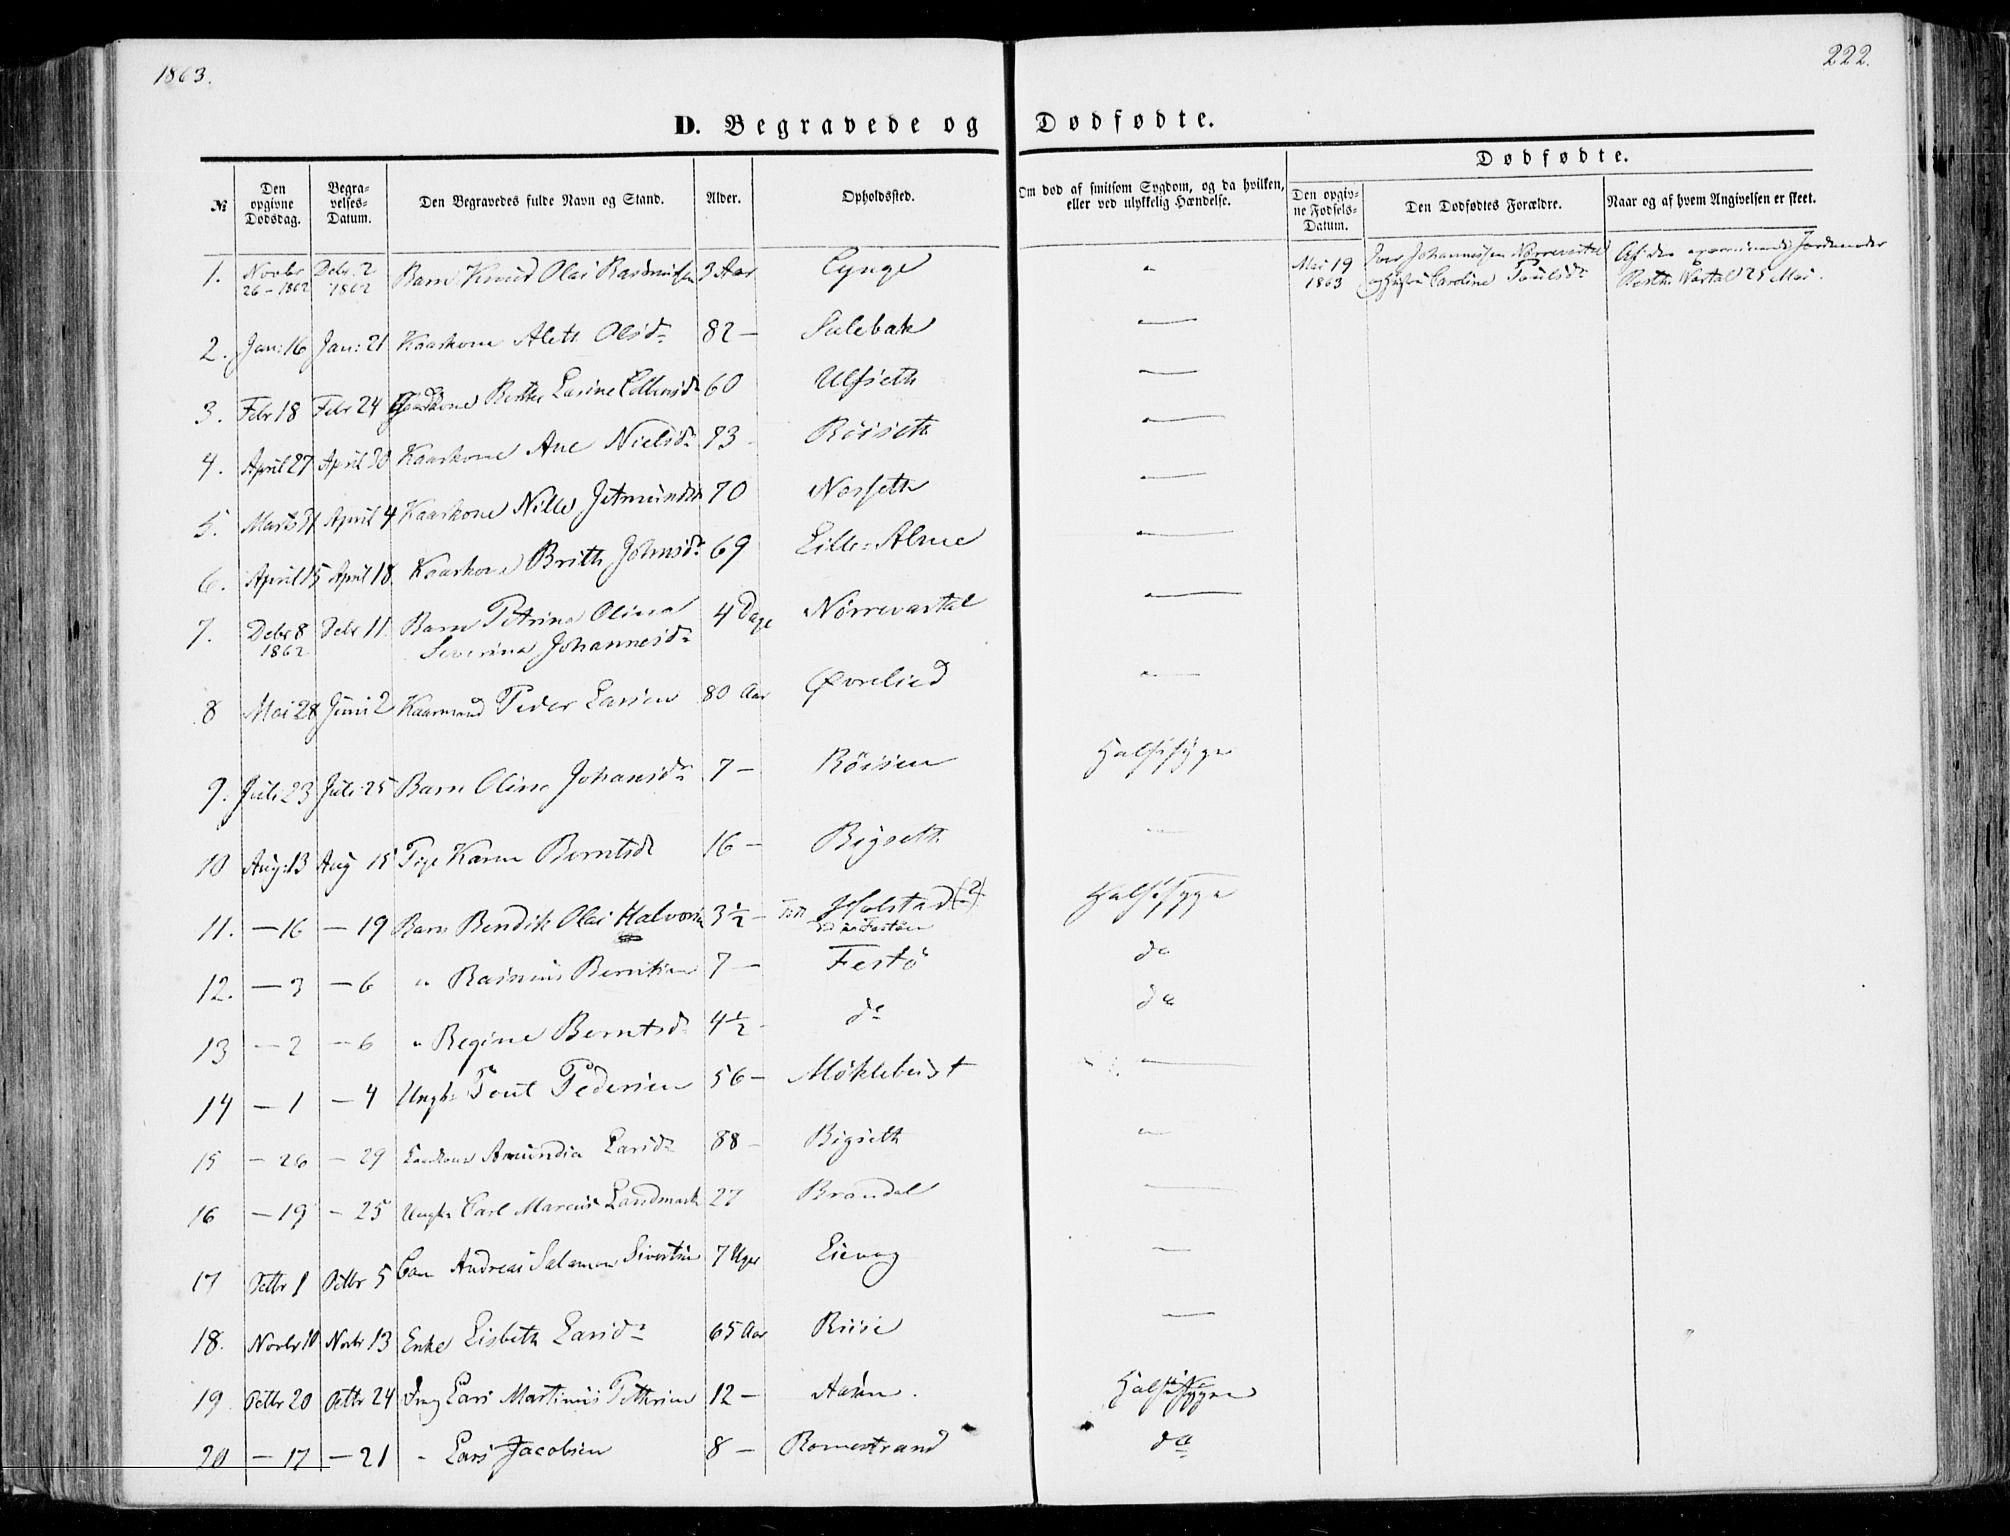 1863.
222.
D. Begravede og Dødfødte.
Dødfødte.
№ Den opgivne Dødsdag. Begravelses-Datum. Den Begravedes fulde Navn og Stand. Alder. Opholdssted. Om død af smitsom Sygdom, og da hvilken, eller ved ulykkelig Hændelse. Den opgivne Fødsels-Datum. Den Dødfødtes Forældre. Naar og af hvem Angivelsen er skeet.
1. Novbr 26 - 1862 Debr. 2 1862 Barn Knud Olai Rasmusen 3 Aar Lynge " Mai 19 1863 Iver Johannessen Nørrevartal og Hustru Caroline Poulsdr Af den examinerede Jordemoder Berthe Vartal 25 Mai.
2. Jan: 16 Jan: 21 Kaarkone Aleth Olsdr 82 — Sulebak —
3. Febr 18 Febr 24 Berthe Larine 60 Ulfseth —
4. April 27 April 30 Kaarkone Ane Nielsdr 73 - Röiseth —
5. Marts 31 April 4 Kaarkone Nille Jetmundsdr 70 Nosseth —
6. April 15 April 18 Kaarkone Brith Johnsdr 69 Lille-Alme —
7. Debr 8 1862 Debr 11 Barn Petrine Olina Severina Johannesdr 4 Dage Nörrevartal —
8 Mai 28 Juni 2 Kaarmand Peder Larsen 80 Aar Øvrelied —
9. Juli 23 Juli 25 Barn Oline Johansdr 7 — Röisen Halssyge
10 Aug: 13 Aug 15 Pige Karen Berntsdr 16 — Bigseth —
11. — 16 — 19 Barn Bendik Olai Halvorsen 3 ½ — Holstad (?) Halssyge
12. — 3 — 6 " Rasmus Berntsen 7 — Festö do
13 — 2 — 6 " Regine Berntsdr 4 ½ - do do
14 — 1 — 4 Ungk. Poul Pedersen 56 — Möklebust —
15 — 26 — 29 Amundia Larsdr 88 - Bigseth —
16 — 19 — 25 Ungk. Carl Marcus Landmark 27 Brandal —
17 Octbr 1 Octbr 5 Andreas Salamon Sivertsen 7 Uger Eievag —
18. Novbr 10 Novbr 13 Enke Lisbeth Larsdr 65 Aar Riise —
19 Octbr 20 Octbr 24 Lars Martinus Pettersen 12 — Aasen. Halssyge
20 — 17 — 21 " Lars Jacobsen 8 — Romestrand do